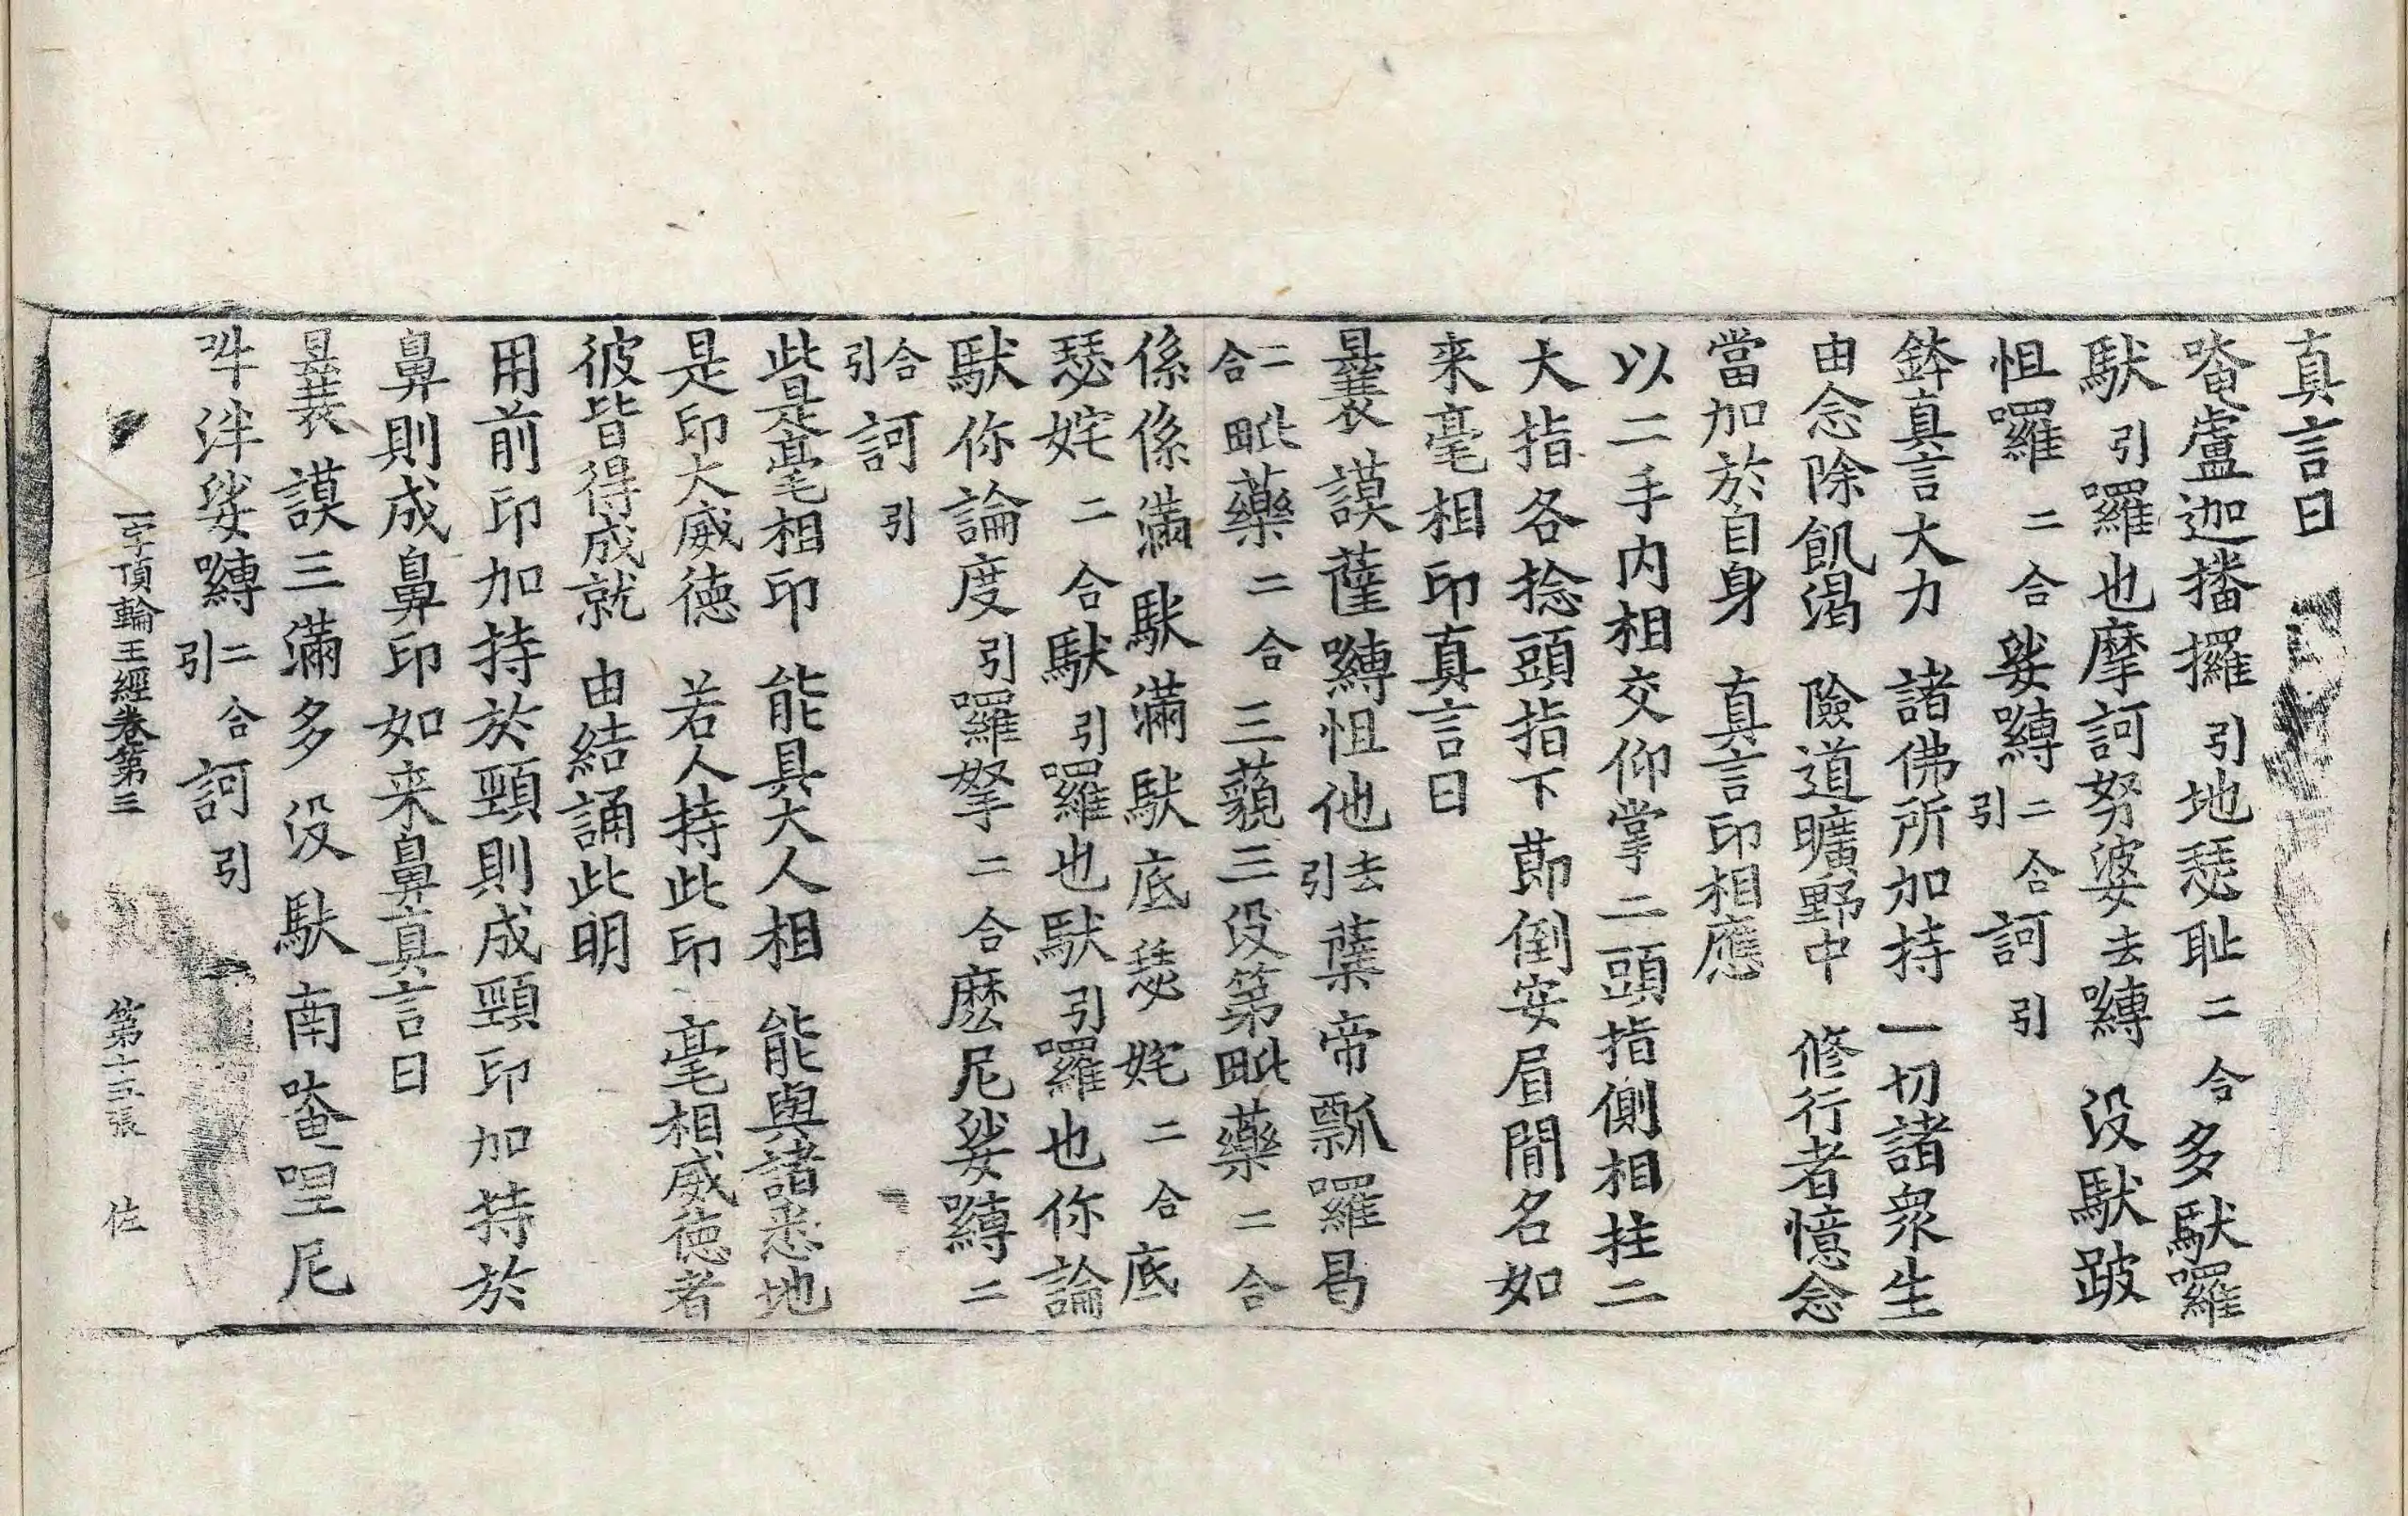 真言曰
唵盧迦播攞引地瑟耻二合多馱囉
馱引囉也摩訶努婆去嚩没馱跛
怛囉二合娑嚩二合引訶引
鉢真言大力諸佛所加持一切諸衆生
由念除飢渴險道曠野中修行者憶念
當加於自身真言印相應
以二手内相交仰掌二頭指側相拄二
大指各捻頭指下莭倒安眉間名如
来毫相印真言曰
曩謨薩嚩怛他去引蘖帝瓢囉曷
二合毗藥二合三藐三没第毗藥二合
係係滿馱滿馱底瑟姹二合底
瑟姹二合馱引囉也馱引囉也你論
馱你論度引囉拏二合麽尼娑嚩二
合引訶引
此是毫相印能具大人相能與諸悉地
是印大威徳若人持此印毫相威徳者
彼皆得成就由結誦此明
用前印加持於頸則成頸印加持於
鼻則成鼻印如来鼻真言曰
曩謨三滿多没馱南唵哩尼
吽泮娑嚩二合引訶引
一字頂輪王經卷第三 第十五張 佐